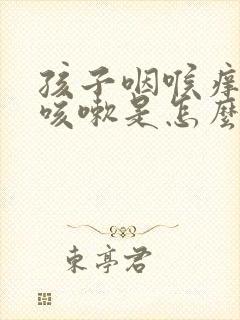 孩子咽喉痒
咳嗽是怎麽
東亭君